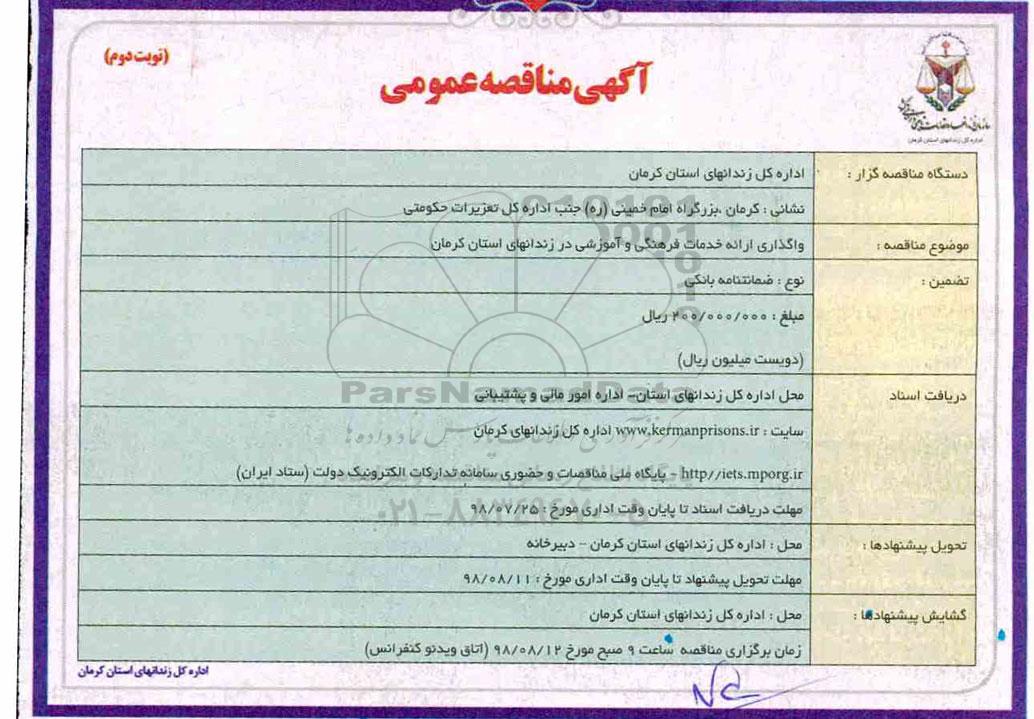 (نوبت دوم)
آگهی مناقصه عمومی
اداره کل زندانهای استان کرمان
دستگاه مناقصه گزار : اداره کل زندانهای استان کرمان
نشانی : کرمان ،بزرگراه امام خمینی (ره) جنب اداره کل تعزیرات حکومتی
موضوع مناقصه : واگذاری ارائه خدمات فرهنگی و آموزشی در زندانهای استان کرمان
تضمین : نوع : ضمانتنامه بانکی
مبلغ : ۲۰۰/۰۰۰/۰۰۰ ریال
(دویست میلیون ریال)
دریافت اسناد محل اداره کل زندانهای استان– اداره امور مالی و پشتیبانی
سایت : www.kermanprisons.ir اداره کل زندانهای کرمان
http//iets.mporg.ir – پایگاه ملی مناقصات و حضوری سامانه تدارکات الکترونیک دولت (ستاد ایران)
مهلت دریافت اسناد تا پایان وقت اداری مورخ : ۹۸/۰۷/۲۵
تحویل پیشنهادها : محل : اداره کل زندانهای استان کرمان – دبیرخانه
مهلت تحویل پیشنهاد تا پایان وقت اداری مورخ : ۹۸/۰۸/۱۱
گشایش پیشنهادها : محل : اداره کل زندانهای استان کرمان
زمان برگزاری مناقصه ساعت ۹ صبح مورخ ۹۸/۰۸/۱۲ (اتاق ویدئو کنفرانس)
اداره کل زندانهای استان کرمان
ParsNamadData